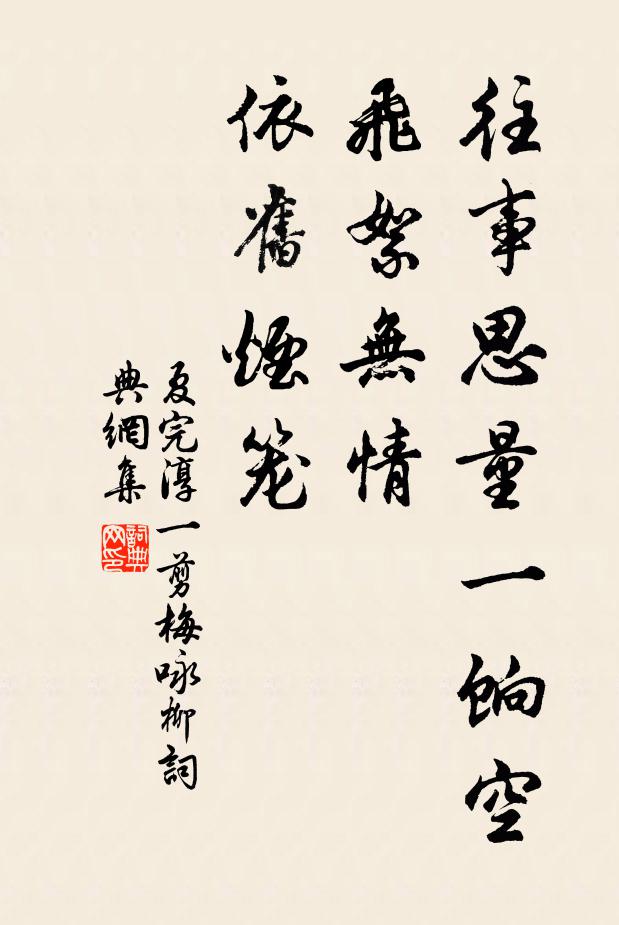 往事思量一餉空
飛絮無情
依舊煙笼
夏完淳一剪梅咏柳詞
典網集
詞典网印